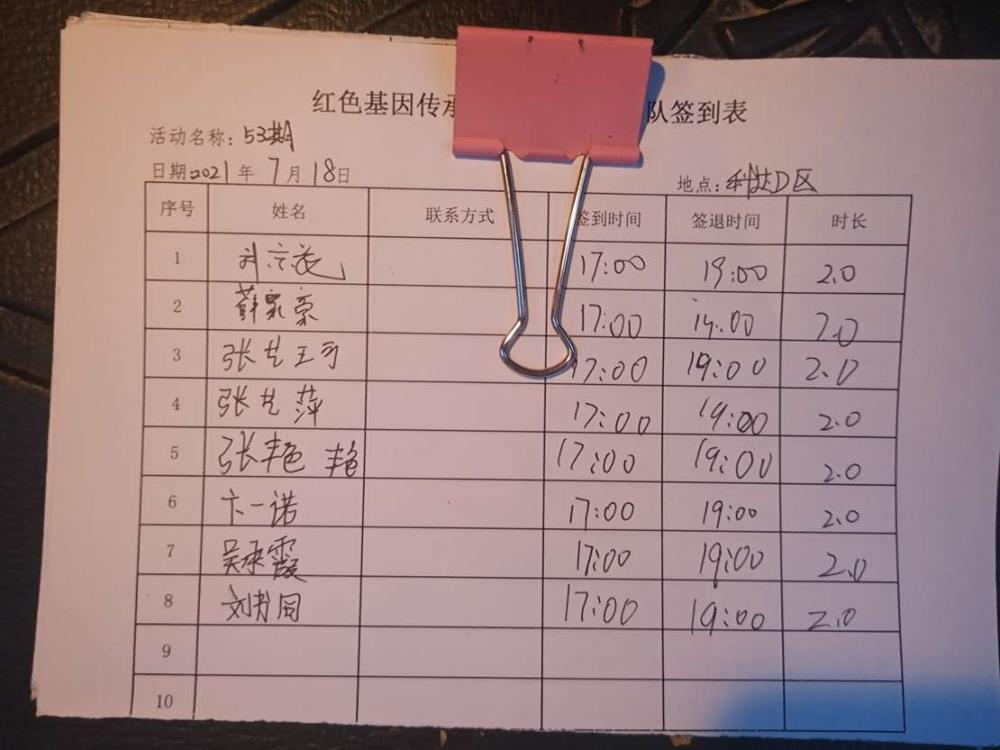 红色基因传承 队签到表
活动名称：53期
日期2021年7月18日 地点：科达D区
序号 姓名 联系方式 签到时间 签退时间 时长
1 17:00 19:00 2.0
2 薛家豪 17:00 19:00 2.0
3 张艺 17:00 19:00 2.0
4 张艺萍 17:00 19:00 2.0
5 张艳艳 17:00 19:00 2.0
6 卞一诺 17:00 19:00 2.0
7 吴承霞 17:00 19:00 2.0
8 刘 17:00 19:00 2.0
9
10